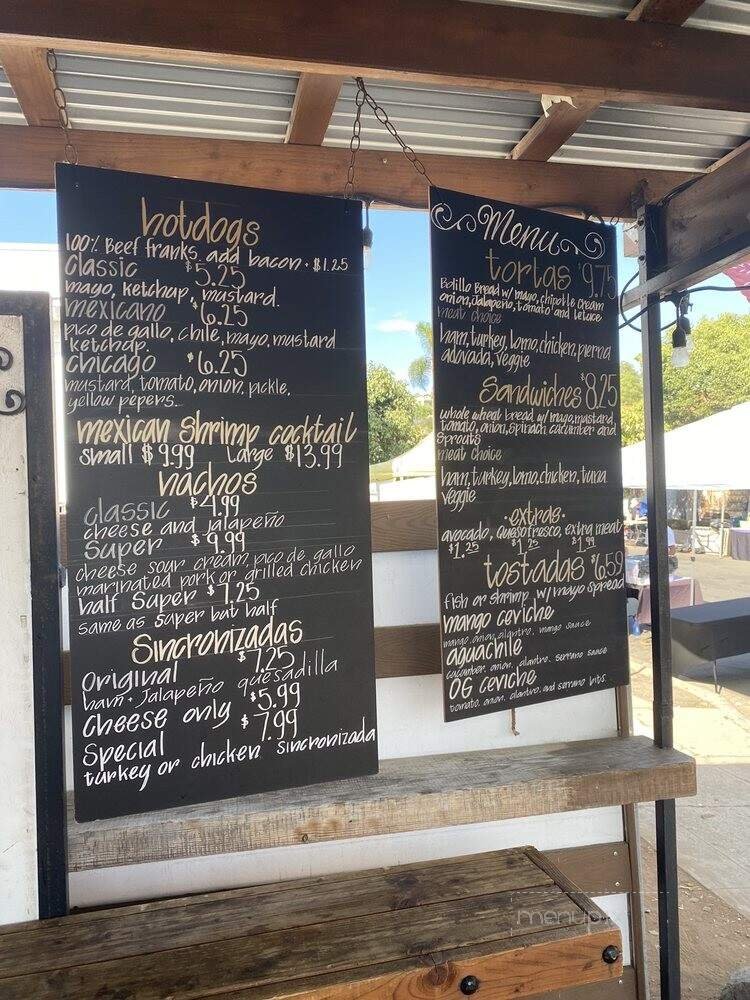 hotdogs
100% Beef franks. add bacon. $1.25
classic $5.25
mayo, ketchup, mustard.
mexicano $6.25
pico de gallo, chile, mayo, mustard
ketchup.
chicago $6.25
mustard, tomato, onion, pickle,
yellow pepers.
mexican shrimp cocktail
small $9.99 Large $13.99
nachos
classic $4.99
cheese and jalapeño
Super $9.99
cheese sour cream, pico de gallo
marinated pork or grilled chicken
half Super $7.25
same as super but half
Sincronizadas
Original $7.25
ham + Jalapeño quesadilla
Cheese only $5.99
Special $7.99
turkey or chicken sincronizada
Menu
tortas $9.75
Bolillo Bread w/ mayo, chipotle cream
onion, jalapeño, tomato and letuce
meat choice
ham, turkey, lomo, chicken, pierna
adovada, veggie
Sandwiches $8.25
whole wheat bread w/ mayo, mustard,
tomato, onion, spinach, cucumber and
sprouts
meat choice
ham, turkey, lomo, chicken, tuna
veggie
·extras·
avocado, Queso fresco, extra meat
$1.25 $1.25 $1.99
tostadas $6.59
fish or shrimp w/ mayo spread
mango ceviche
mango, onion, cilantro, mango sauce
aguachile
cucumber, onion, cilantro, serrano sauce
OG ceviche
tomato, onion, cilantro, and serrano bits.
menupix